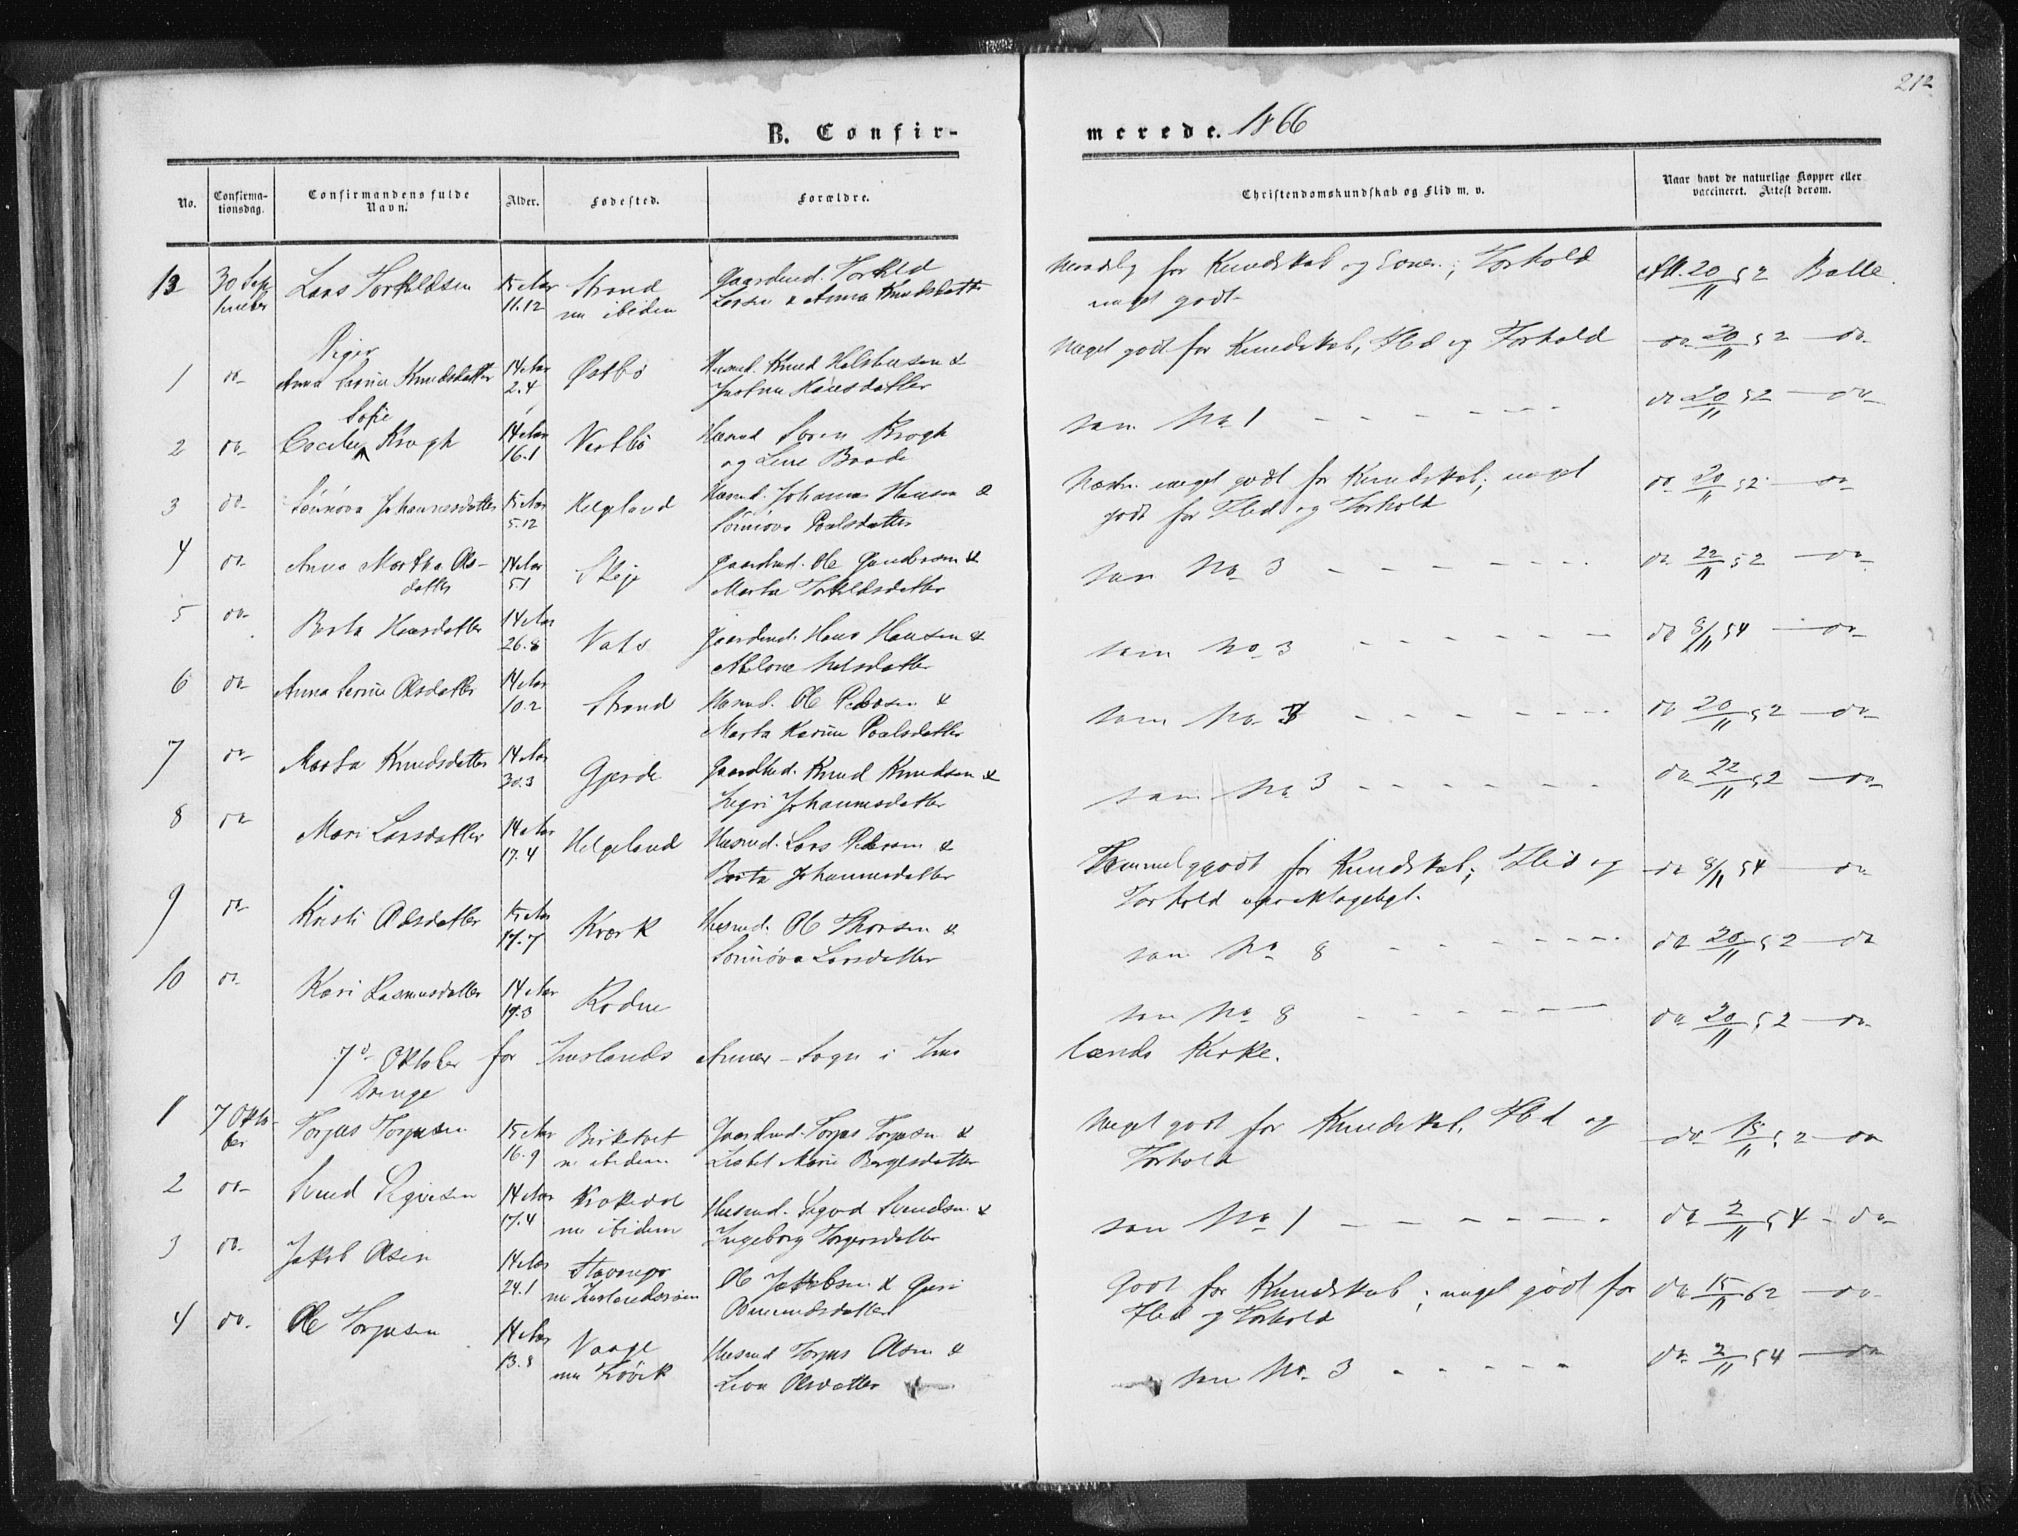 212
B. Confir-
merede. 1866
No.
Confirma-
tionsdag.
Confirmandens fulde
Navn.
Alder.
Fødested.
Forældre.
Christendomskundskab og Flid m. v.
Naar havt de naturlige Kopper eller
vaccineret. Attest derom.
13 30 Sep- Lars Torkildsen 15 Aar Strand Gaardmd. Torkild for Kundskab og Evner; Forhold Att. 20/11 52 Balle.
tember 11.12 nu ibidem Larsen & Anna Knudsdatter meget godt
Piger
1 do Anna Serine Knudsdatter 14 Aar 2.4 Østbø Husmd. Knud & Hansdatter Meget godt for Kundskab, Flid og Forhold do 20/11 52 do
Sofie
2 do Cecilie Krogh 14 Aar 16.1 Vestbø Husmd Søren Krogh som No 1 do 20/11 52 do
og Lene
3 do Sørinøva Johannesdatter 15 Aar 5.12 Helgeland Husmd. Johannes Hansen & Næsten meget godt for Kundskab; meget do 20/11 52 do
Sørinøva Poalsdatter godt for Flid og Forhold
4 do Anna Martha Ols- 14 Aar 5.1 Steje Gaardmd. Ole Gundersen & som No 3 do 22/11 52 do
datter Marta Torkildsdatter
5 do Berta Hansdatter 14 Aar 26.8 Vats Gaardmd. Hans Hansen & som No 3 do 8/11 54 do
Nilsdatter
6 do Anna Serine Olsdatter 14 Aar 10.2 Strand Husmd. Ole Pedersen & som No 3 do 20/11 52 do
Marta Karine Poalsdatter
7 do Marta Knudsdatter 14 Aar 30.3 Gjerde Gaardmd. Knud Knudsen & som No 3 do 22/11 52 do
Johannesdatter
8 do Mari Larsdatter 14 Aar 17.4 Helgeland Husmd. Lars Pedersen & Temmelig godt for Kundskab; Flid og do 8/11 54 do
Berta Johannesdatter Forhold
9 do Kristi Olsdatter 15 Aar 17.7 Kværk Husmd. Ole Thorsen & som No 8 do 20/11 52 do
Sørinøva Larsdatter
10 do Kari Rasmusdatter 14 Aar 19.3 Rødne som No 8 do 20/11 52 do
7de Oktober for Imslands Annex-Sogn i Ims
lands Kirke.
Drenge
1 7 Okto- Torjus Torjusen 15 Aar Birketvet Gaardmd. Torjus Torjusen & Meget godt for Kundskab, Flid og do 15/11 52 do
ber 16.9 nu ibidem Lisbet Marie Børgesdatter Forhold
2 do Svend Sigvesen 14 Aar Krokedal Husmd. Sigvd Svendsen & som No 1 do 2/11 54 do
17.4 nu ibidem Ingeborg Torgersdatter
3 do Jakob Olsen 14 Aar Stavanger Ole Jakobsen & Guri Godt for Kundskab; meget godt for do 15/11 62 do
24.1 nu Imslandssøen Omundsdatter Flid og Forhold
4 do Ole Torjusen 14 Aar Vaage Husmd Torjus Olsen & som No 3 do 2/11 54 do
13.8 nu Røvik Lisa Olsdatter